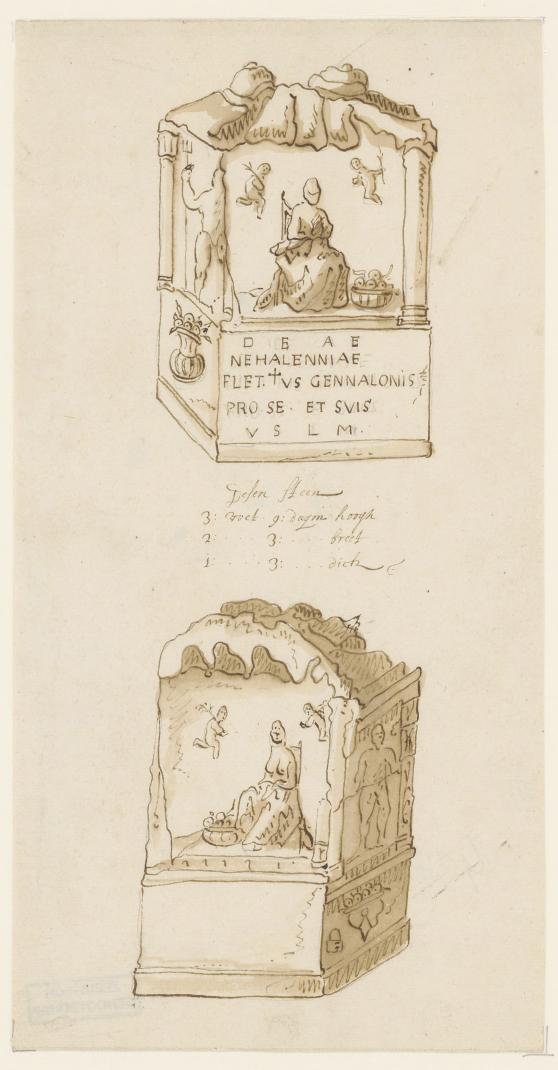 D E A E
NEHALENNIAE
FLET.†VS GENNALONIS
PRO SE. ET SVIS
V S L M.
Desen steen
3: voet 9: duÿm hoogh
2: . . . 3: . . . . breet
1: . . . 3: . . . . dick